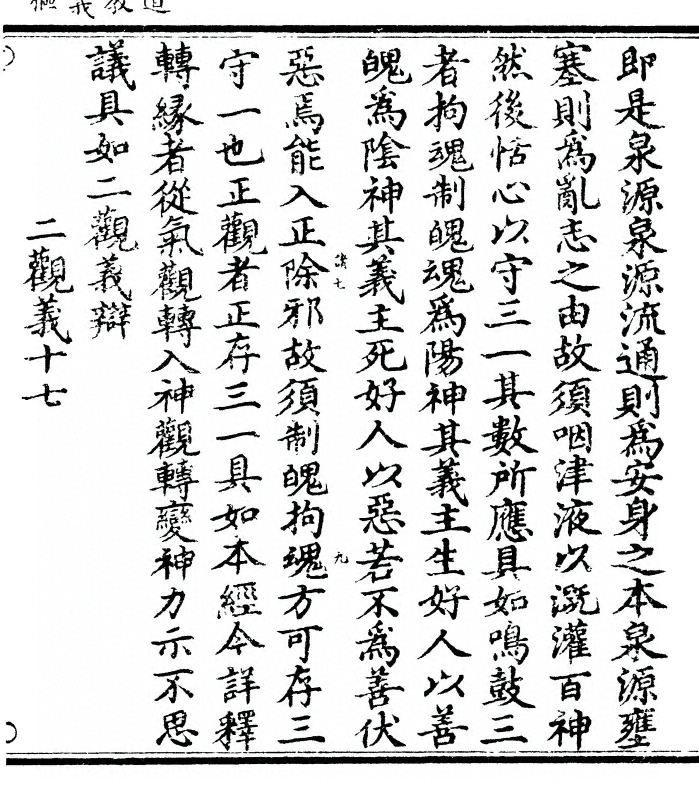 道教義樞
即是泉源泉源流通則爲安身之本泉源壅
塞則爲亂志之由故須咽津液以溉灌百神
然後恬心以守三一其數所應具如鳴鼓三
者拘魂制魄魂爲陽神其義主生好人以善
魄爲陰神其義主死好人以惡若不爲善伏
惡焉能入正除邪故須制魄拘魂方可存三
諸七
九
守一也正觀者正存三一具如本經今詳釋
轉緣者從氣觀轉入神觀轉變神力示不思
議具如二觀義辯
二觀義十七